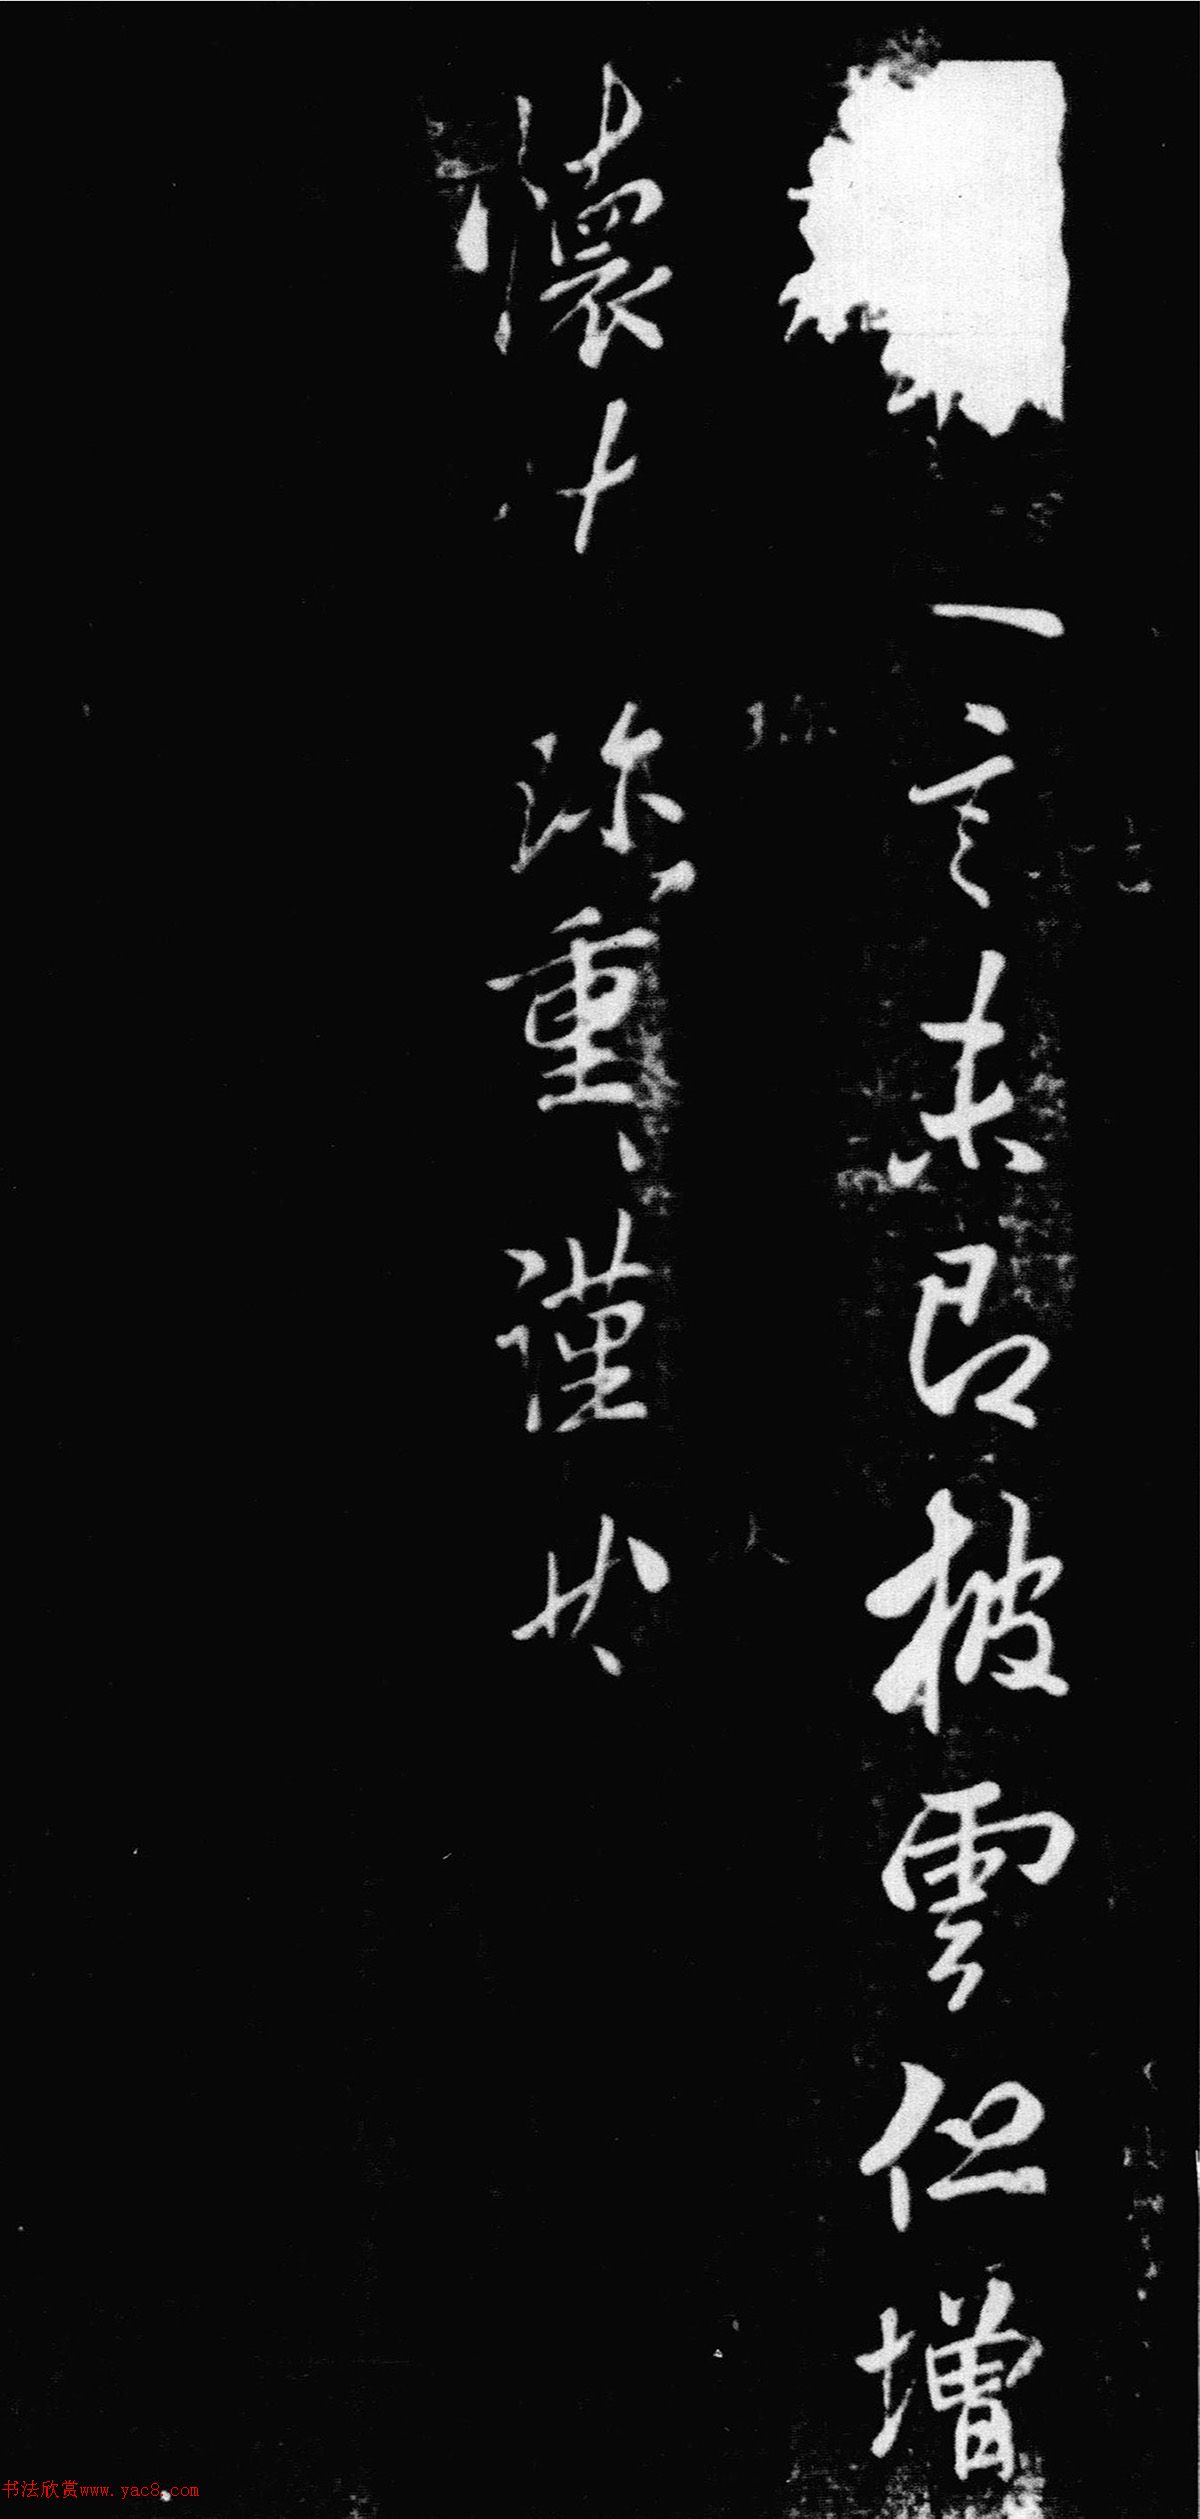 一言未即披雲但增
懷十珍重謹
书法欣赏www.yac8.com